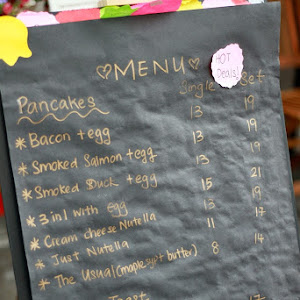 ♡MENU♡
HOT Deals!
Single Set
Pancakes
* Bacon + egg 13 19
* Smoked Salmon + egg 13 19
* Smoked Duck + egg 13 19
* 3 in 1 with egg 15 21
* Cream cheese Nutella 13 19
* Just Nutella 11 17
* The Usual (maple syrup + butter) 8 14
Toast